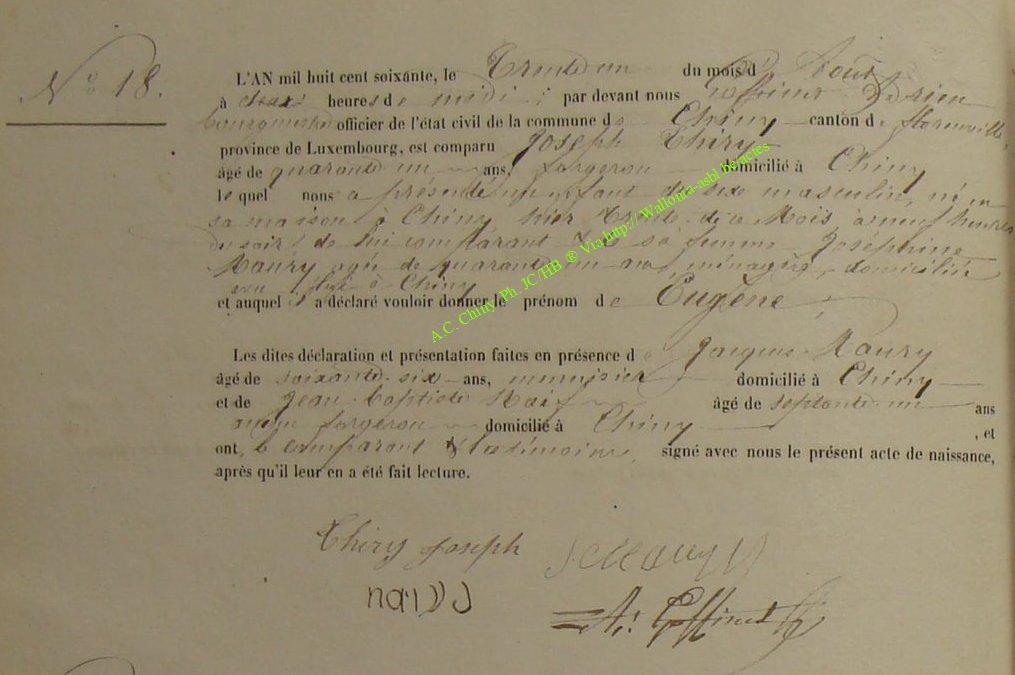 N° 18.
L'AN mil huit cent soixante, le Trente un du mois d' Aout
à deux heures de midi par devant nous Effinet Adrien
bourgmestre officier de l'état civil de la commune de Chiny canton de florenville,
province de Luxembourg, est comparu Joseph Thiry
âgé de quarante un ans, forgeron domicilié à Chiny
lequel nous a présenté un enfant du sexe masculin, né en
sa maison à Chiny hier Trente du Mois à neuf heures
du soir, de lui comparant & de sa femme Joséphine
Maury agée de quarante un ans, ménagère, domiciliée
à Chiny
et auquel il a déclaré vouloir donner le prénom de Eugène
Les dites déclaration et présentation faites en présence de Jacques Maury
âgé de soixante-six ans, menuisier domicilié à Chiny
et de Jean-baptiste âgé de septante-un ans
ancien forgeron domicilié à Chiny , et
ont, le comparant & les témoins, signé avec nous le présent acte de naissance,
après qu'il leur en a été fait lecture.
Thiry Joseph
A. Effinet
A.C. Chiny/Ph. JC/HB ® Via http://Wallonia-asbl.be/actes